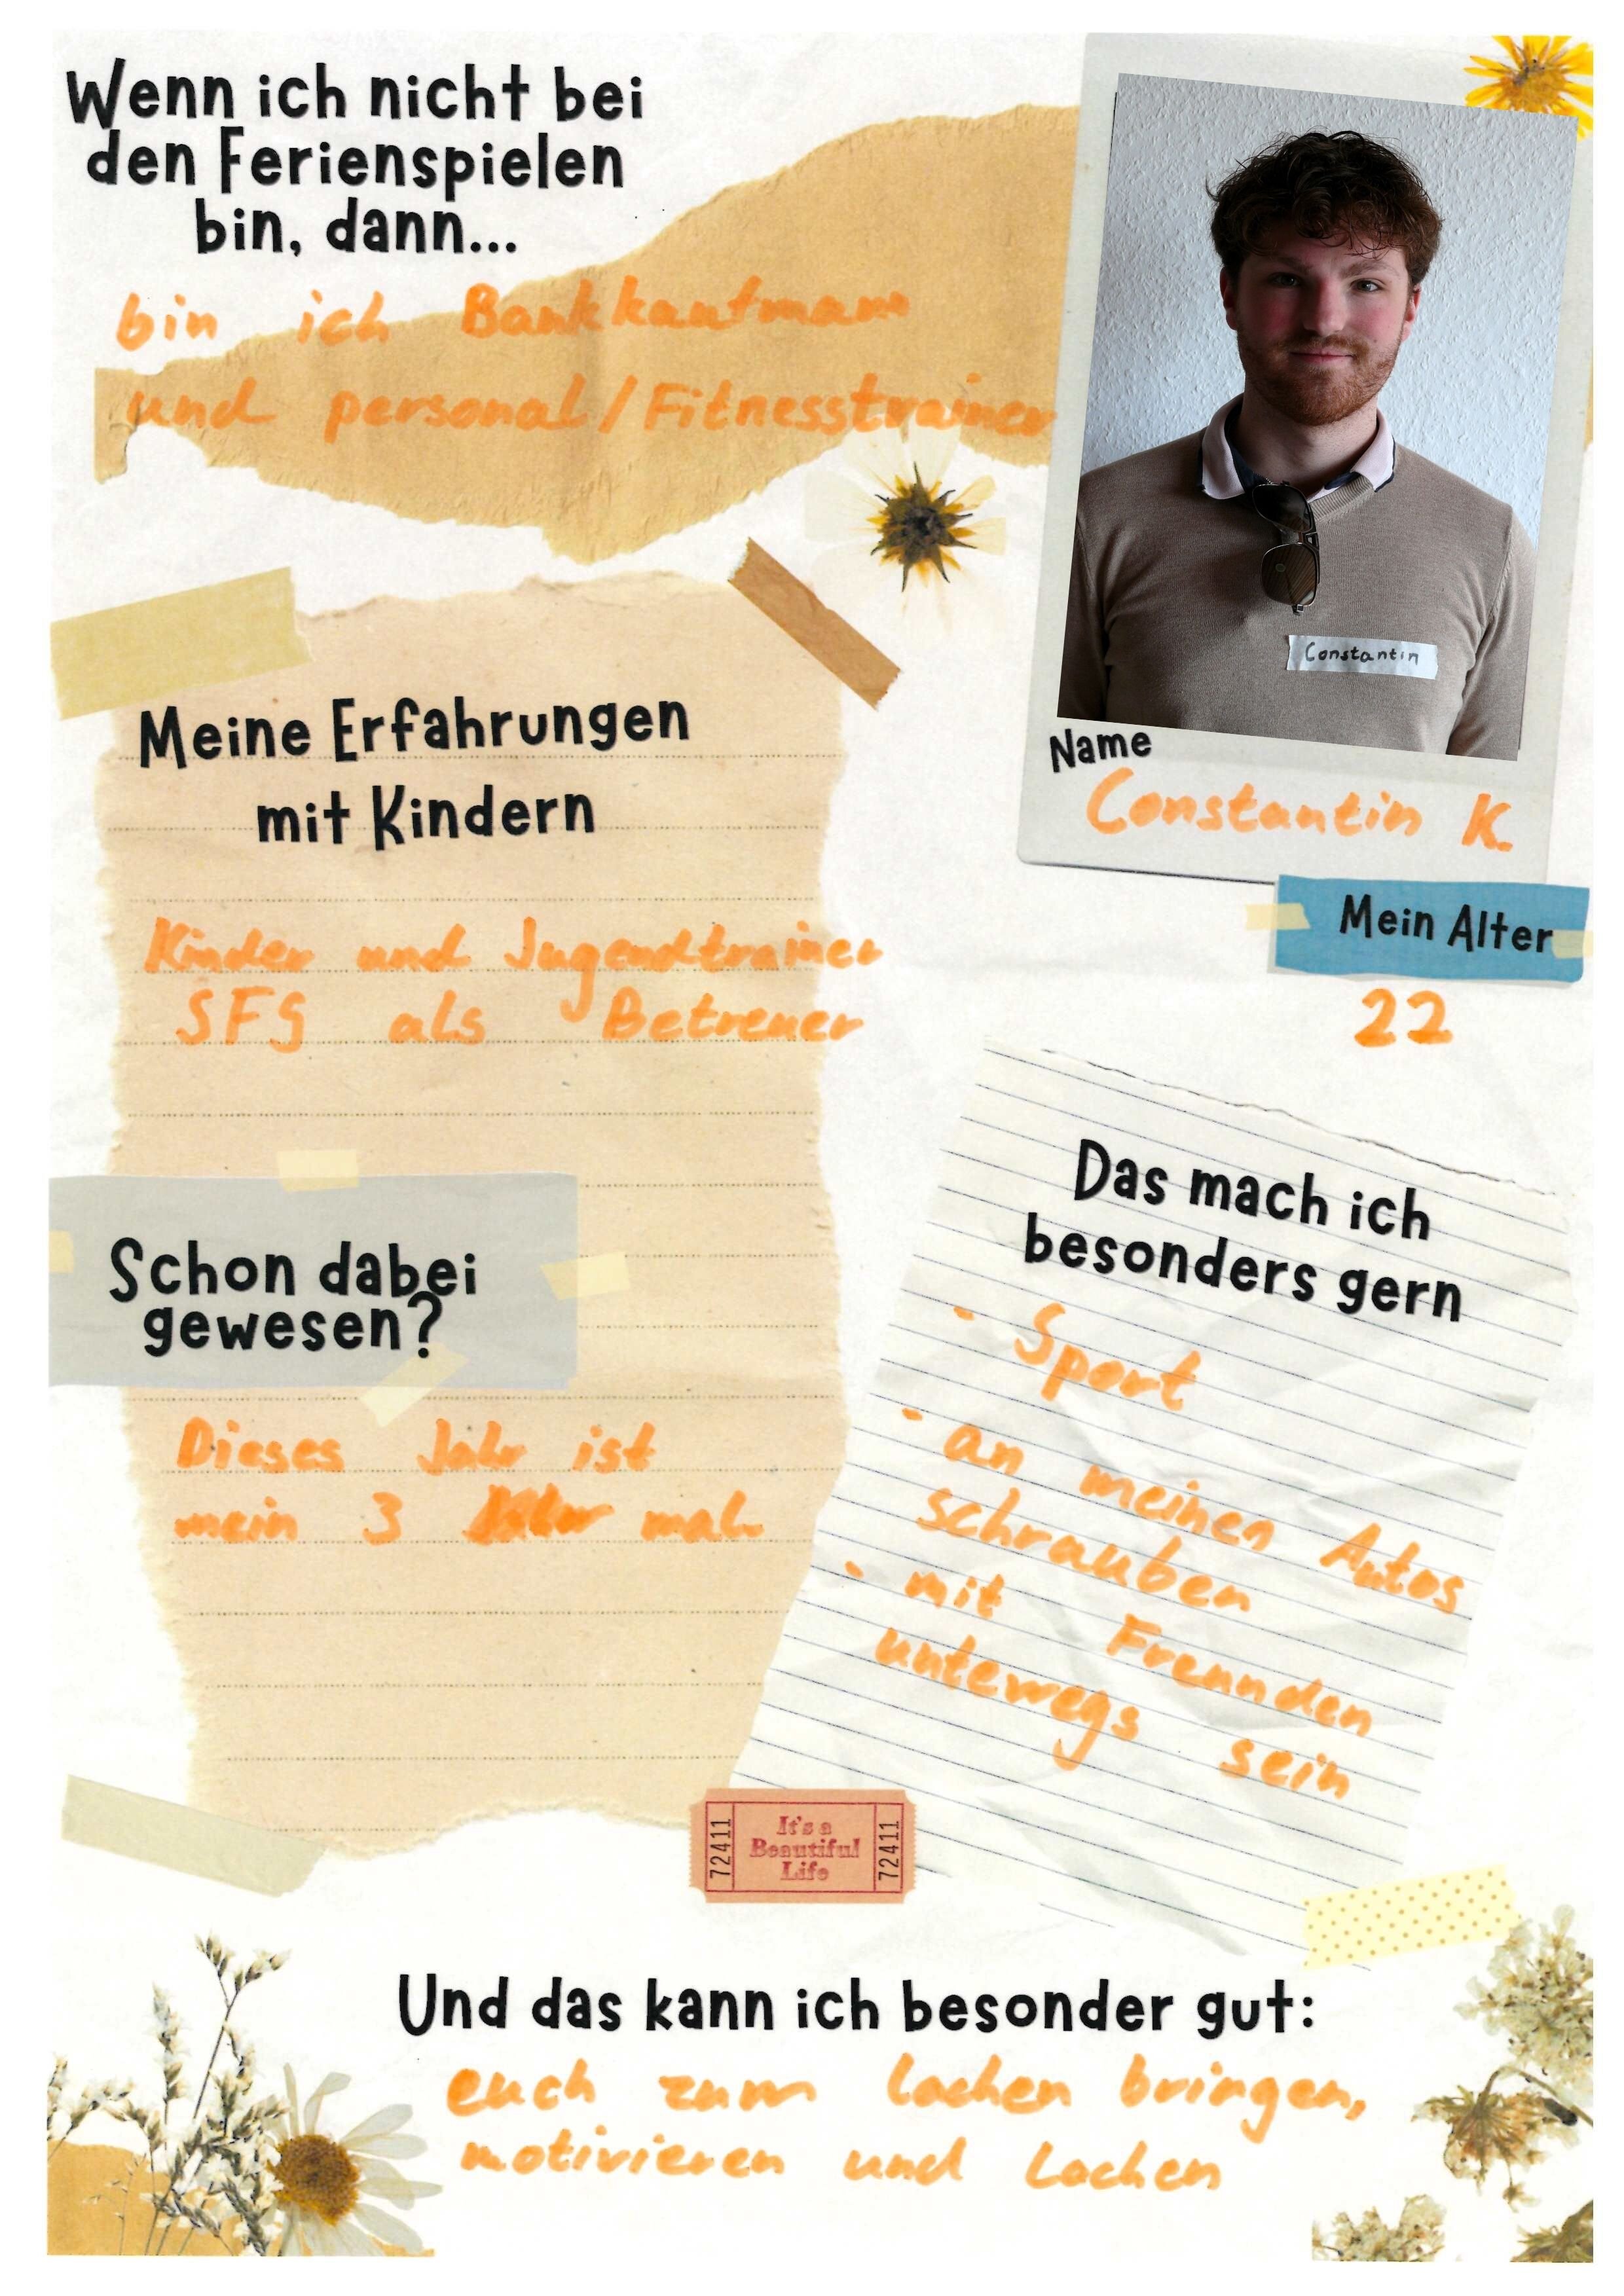 Wenn ich nicht bei
den Ferienspielen
bin, dann...
bin ich Bankkaufmann
und personal/Fitnesstrainer
Constantin
Name
Constantin K.
Mein Alter
22
Meine Erfahrungen
mit Kindern
Kinder und Jugendtrainer
SFG als Betreuer
Schon dabei
gewesen?
Dieses Jahr ist
mein 3 mal
Das mach ich
besonders gern
- Sport
- an meinen Autos
schrauben
- mit Freunden
unterwegs sein
72411
It's a
Beautiful
Life
72411
Und das kann ich besonder gut:
euch zum lachen bringen,
motivieren und Lachen